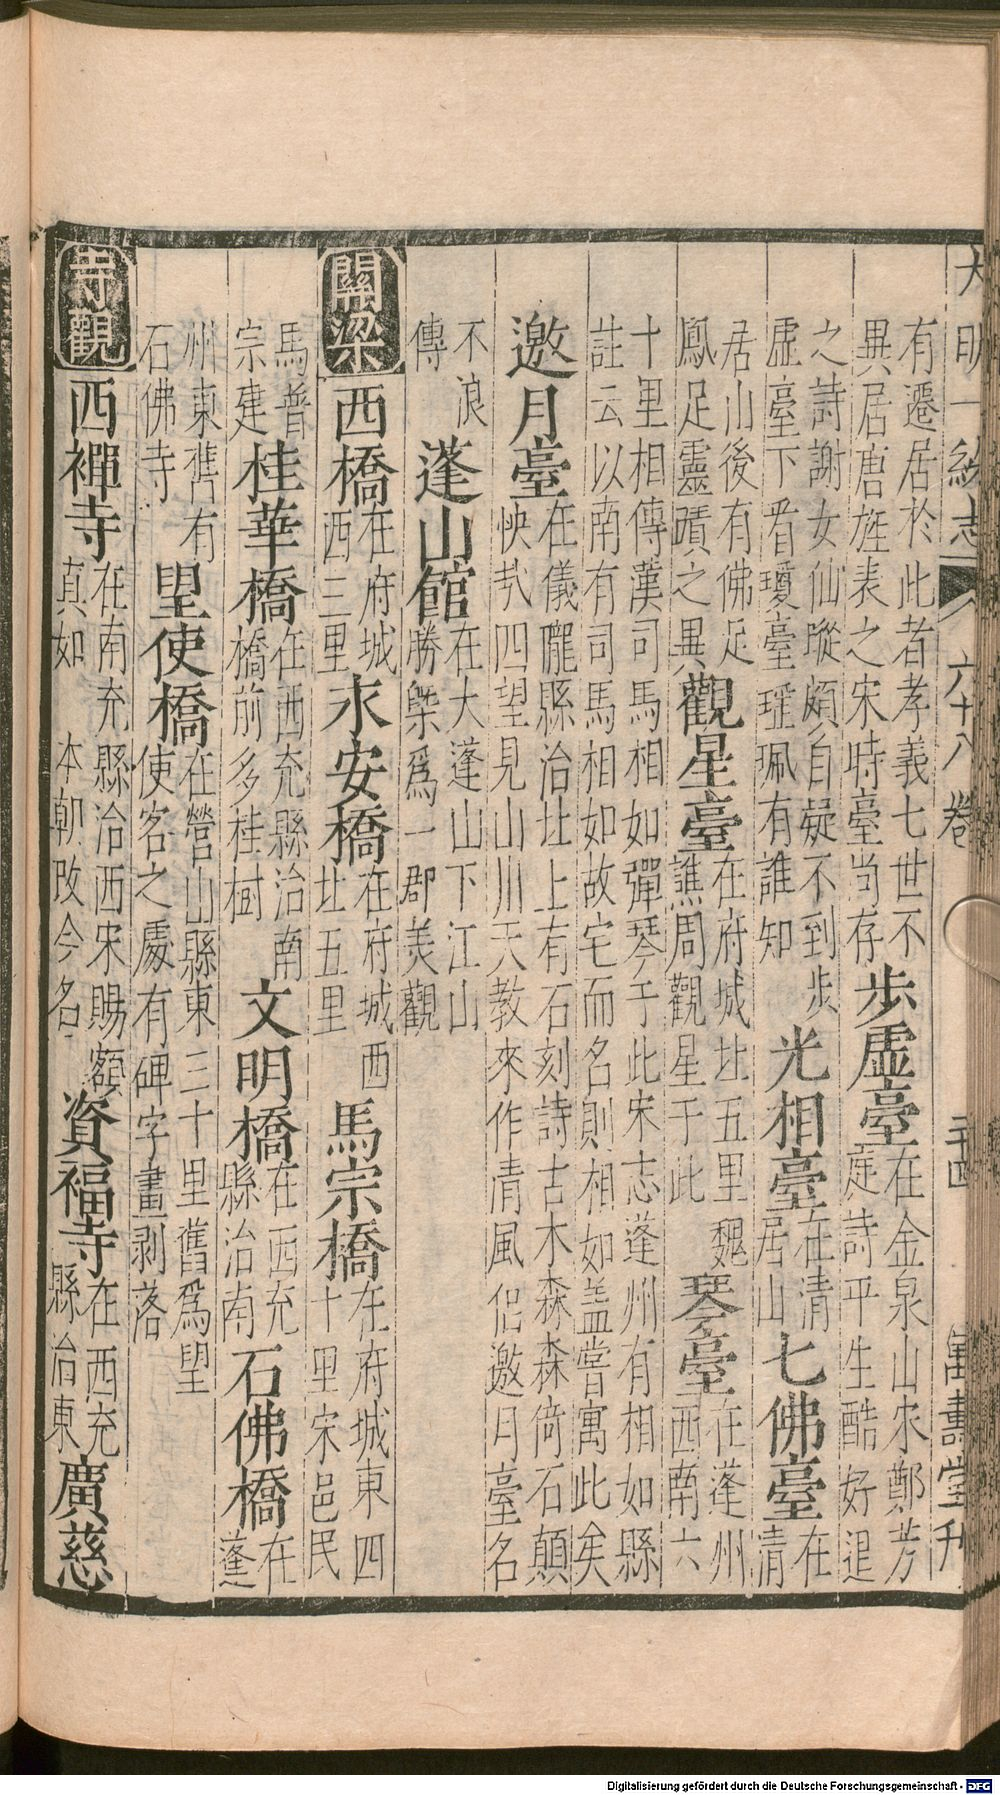 大明一統志 六十八卷 二十四 萬壽堂刊
有遷居於此者孝義七世不異居唐旌表之宋時臺尚存 步虛臺 在金泉山宋鄭芳庭詩平生酷好退
之詩謝女仙蹤頗自疑不到步虛臺下看瓊臺瑤珮有誰知 光相臺 在清居山 七佛臺 在清
居山後有佛足鳳足靈蹟之異 觀星臺 在府城北五里魏譙周觀星于此 琴臺 在蓬州西南六
十里相傳漢司馬相如彈琴于此宋志蓬州有相如縣註云以南有司馬相如故宅而名則相如蓋嘗寓此矣
邀月臺 在儀隴縣治北上有石刻詩古木森森倚石顛快哉四望見山川天教來作清風侶邀月臺名
不浪傳 蓬山館 在大蓬山下江山勝槩爲一郡美觀
關梁 西橋 在府城西三里 永安橋 在府城西北五里 馬宗橋 在府城東四十里宋邑民
馬普宗建 桂華橋 在西充縣治南橋前多桂樹 文明橋 在西充縣治南 石佛橋 在蓬
州東舊有石佛寺 望使橋 在營山縣東三十里舊爲望使客之處有碑字畫剥落
寺觀 西禪寺 在南充縣治西宋賜額真如 本朝改今名 資福寺 在西充縣治東 廣慈
Digitalisierung gefördert durch die Deutsche Forschungsgemeinschaft - DFG